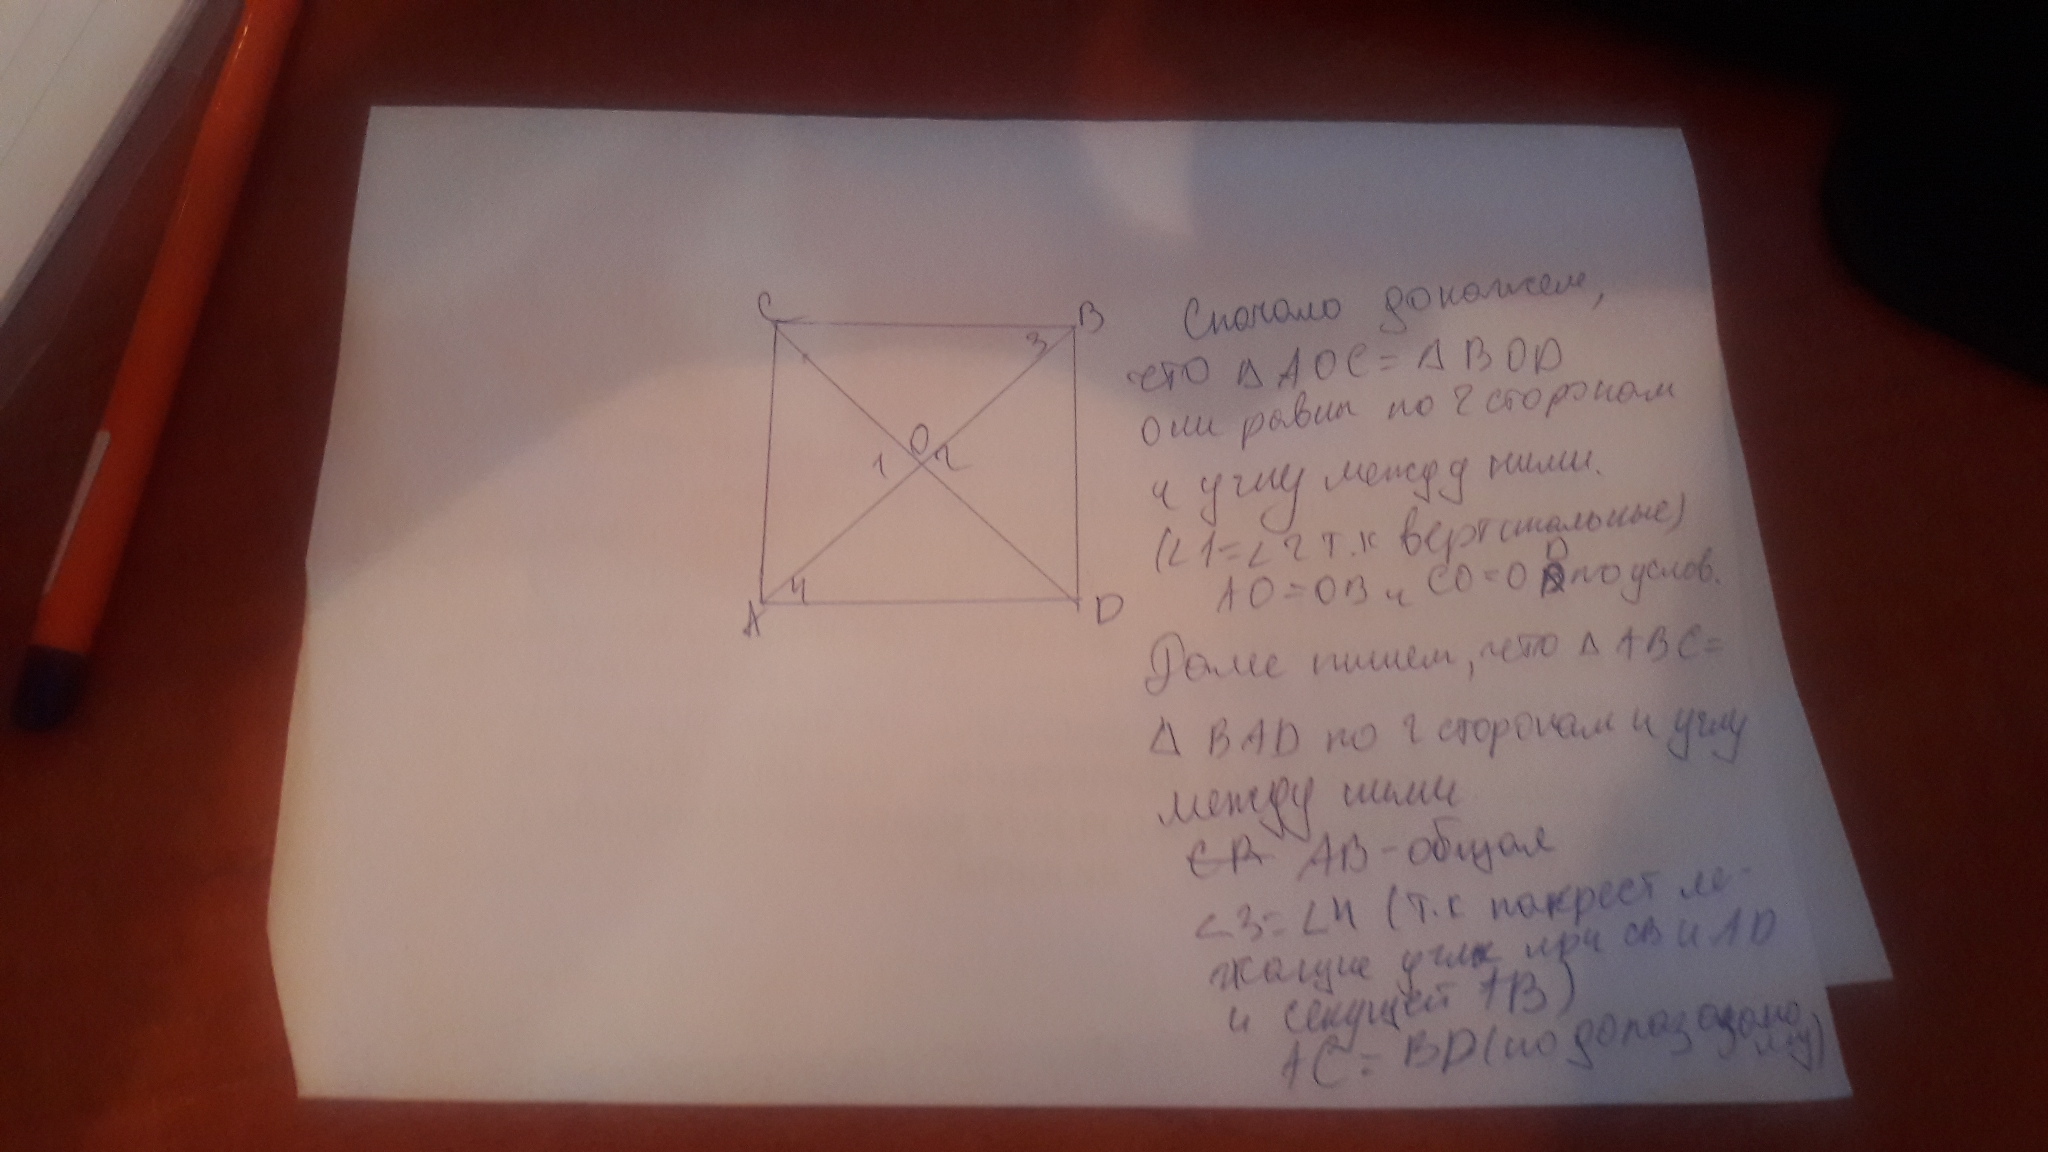 C
B
3
O
1
2
4
A
D
Сначало докажем,
что Δ AOC = Δ BOD
они равны по 2 сторонам
и углу между ними.
(∠1=∠2 т.к вертикальные)
AO=OB и CO=OD по услов.
Далее пишем, что Δ ABC=
Δ BAD по 2 сторонам и углу
между ними
AB - общая
∠3=∠4 (т.к накрест ле-
жащие углы при CB и AD
и секущей AB)
AC = BD (по доказаному)